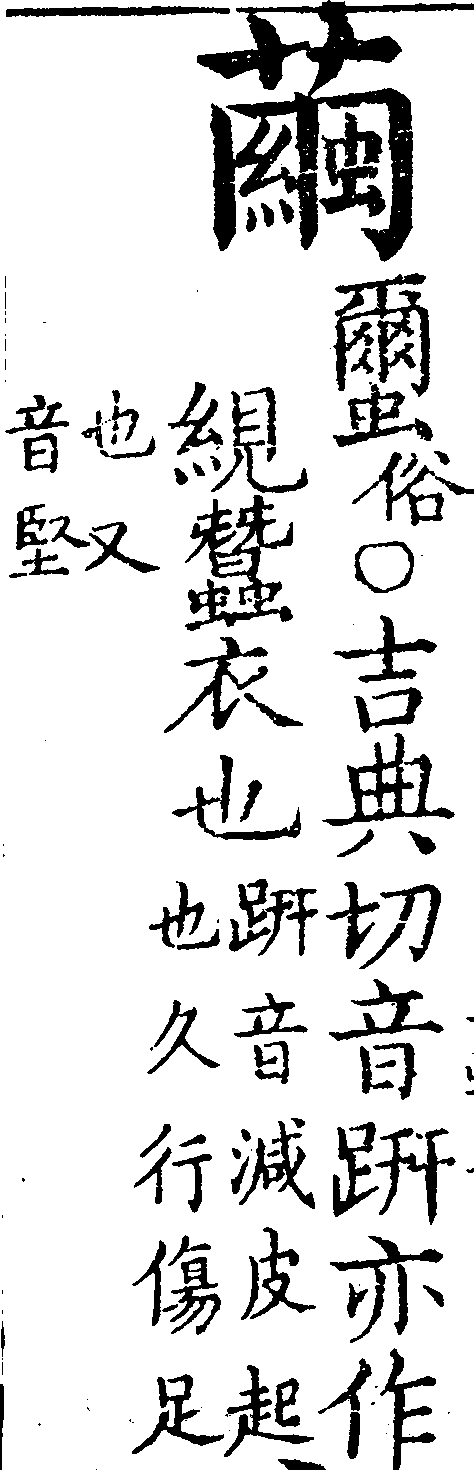 繭
俗○吉典切音趼亦作
絸蠶衣也
趼音減皮起
也久行傷足
也又
音堅